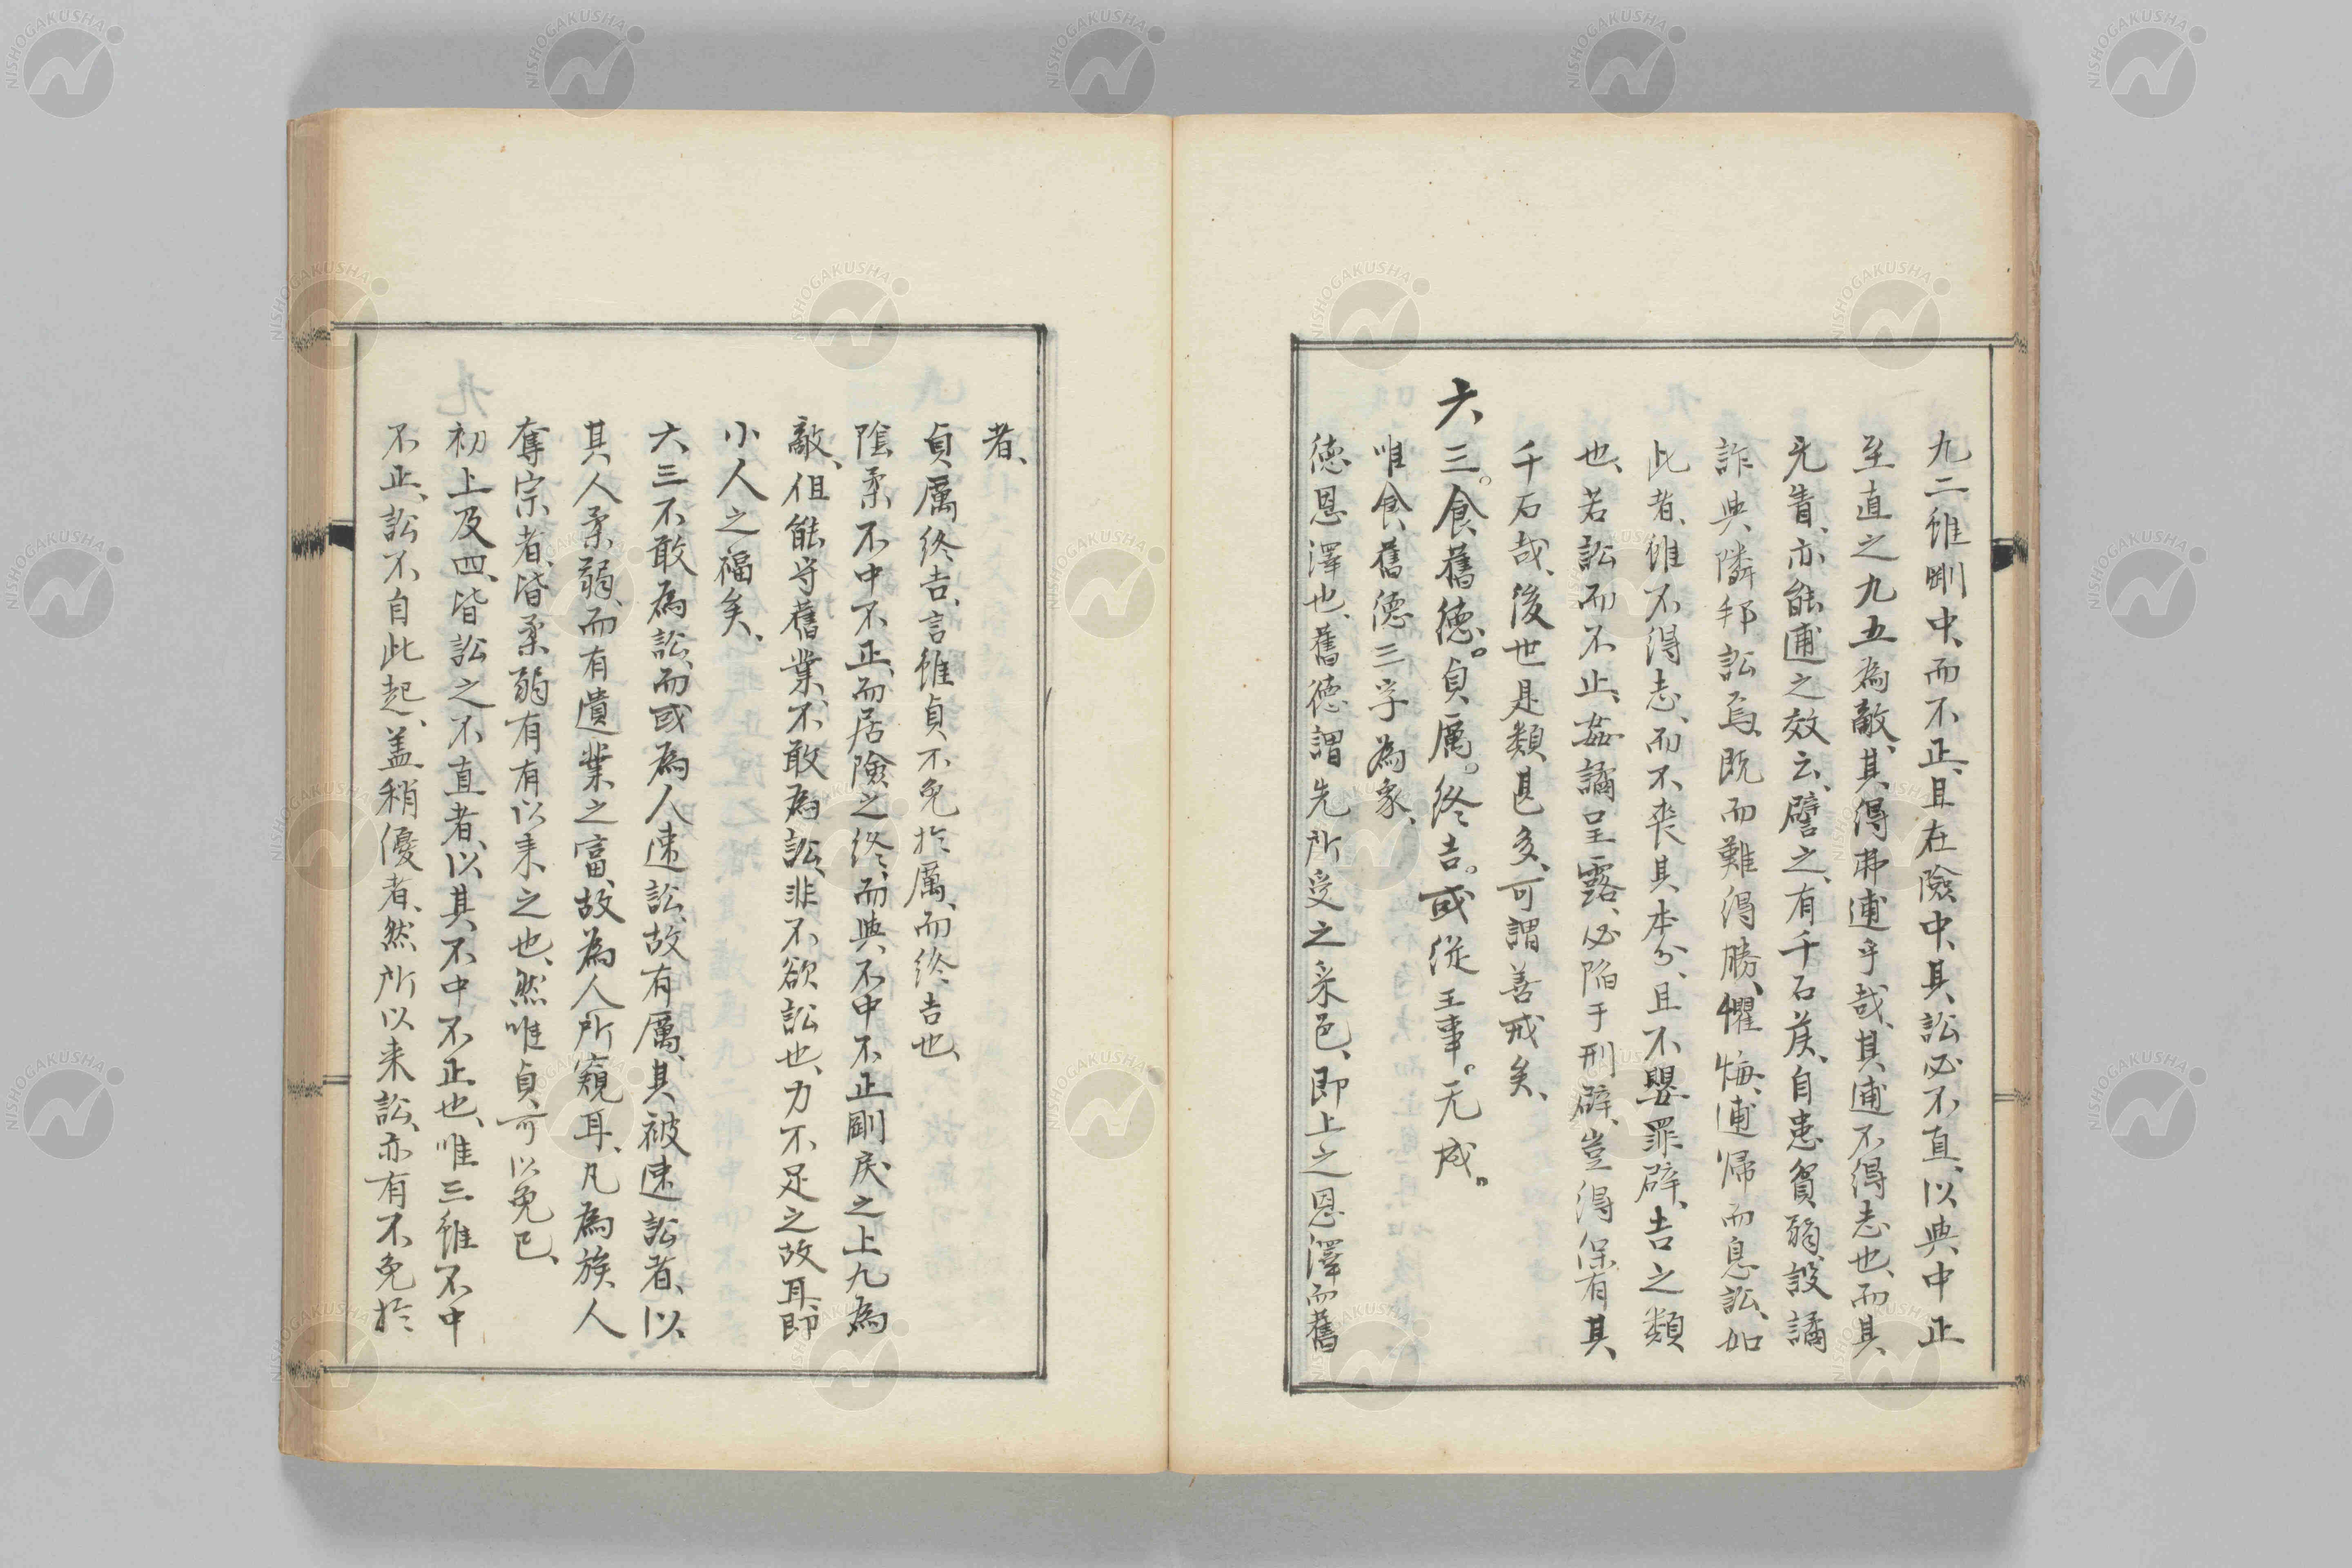 九二雖剛中、而不正、且在險中、其訟必不直、以與中正
至直之九五為敵、其得弗逋乎哉、其逋不得志也、而其
无眚、亦能逋之效云、譬之、有千石矦、自恚貧弱、設譎
詐與隣邦訟焉、既而難得勝、懼悔、逋帰而息訟、如
此者、雖不得志、而不喪其本分、且不嬰罪辟、吉之類
也、若訟而不止、姦譎呈露、必陷于刑辟、豈得保有其
千石哉、後世是類甚多、可謂善戒矣、
六三。食舊德。貞厲。終吉。或從王事。无成。
唯食舊德三字為象、
德恩澤也、舊德謂先所受之采邑、即上之恩澤而舊
者、
貞厲終吉、言雖貞不免於厲、而終吉也、
陰柔不中不正、而居險之終、而與不中不正剛戾之上九為
敵、但能守舊業、不敢為訟、非不欲訟也、力不足之故耳、即
小人之福矣、
六三不敢為訟、而或為人速訟、故有厲、其被速訟者、以
其人柔弱、而有遺業之富、故為人所窺耳、凡為族人
奪宗者、皆柔弱有有以来之也、然唯貞、可以免已、
初上及四、皆訟之不直者、以其不中不正也、唯三雖不中
不正、訟不自此起、盖稍優者、然所以来訟、亦有不免於
NISHOGAKUSHA